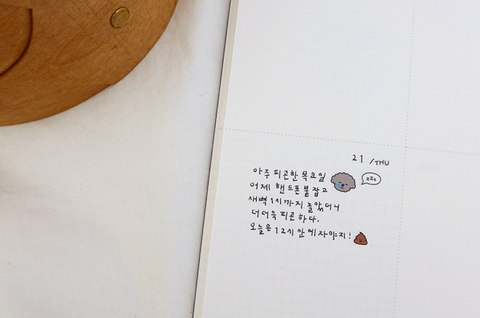 21 /THU
아주 피곤한 목요일
zZz
어제 핸드폰 붙잡고
새벽 1시까지 놀았더니
더더욱 피곤하다.
오늘은 12시 안에 자야지!